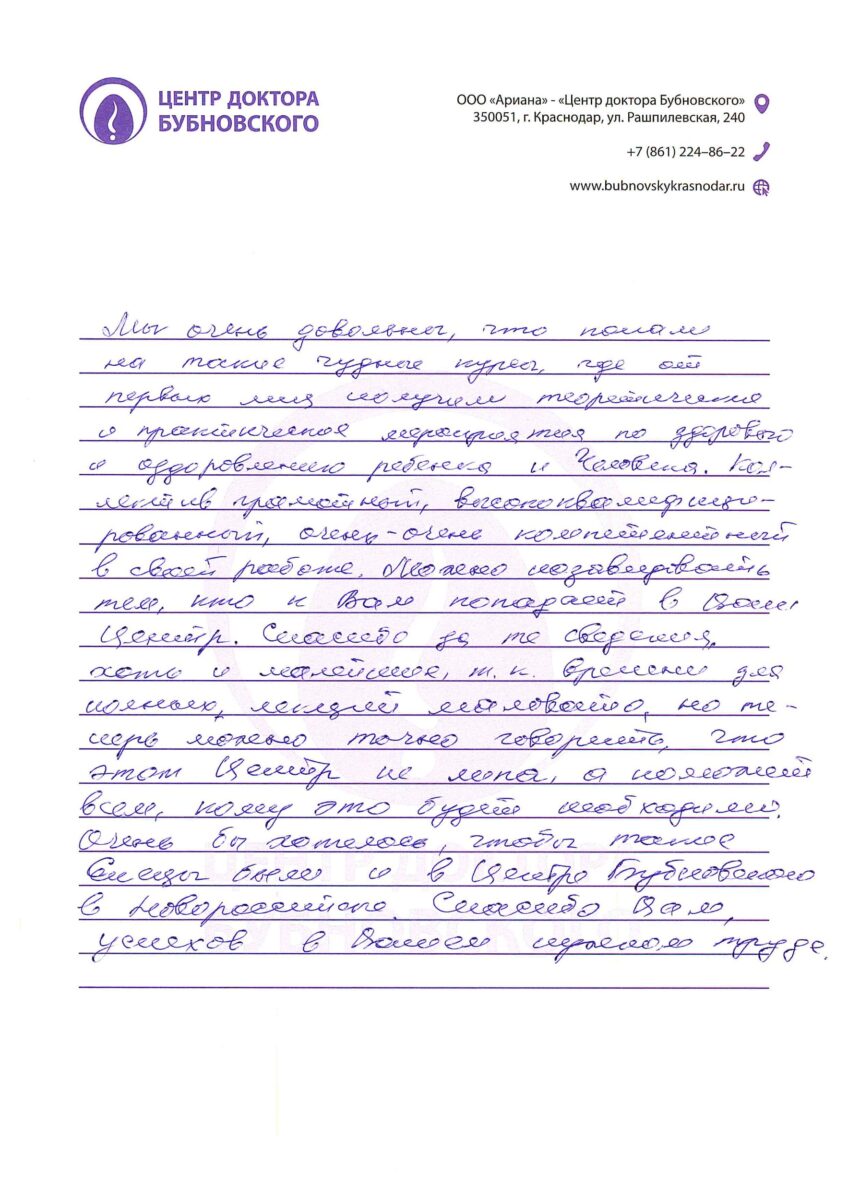 ЦЕНТР ДОКТОРА
БУБНОВСКОГО
ООО «Ариана» - «Центр доктора Бубновского»
350051, г. Краснодар, ул. Рашпилевская, 240
+7 (861) 224–86–22
www.bubnovskykrasnodar.ru
Мы очень довольны, что попали
на такие чудные курсы, где от
первых лиц получили теоретические
и практические мероприятия по здоровью
и оздоровлению ребенка и Человека. Кол-
лектив грамотный, высококвалифици-
рованный, очень-очень компетентный
в своей работе. Можно позавидовать
тем, кто к Вам попадает в Ваш
Центр. Спасибо за те сведения,
хоть и малейшие, т.к. времени для
полных, лекций маловато, но те-
перь можно точно говорить, что
этот Центр не липа, а поможет
всем, кому это будет необходимо.
Очень бы хотелось, чтобы такие
Спецы были и в Центре Бубновского
в Новороссийске. Спасибо Вам,
успехов в Вашем нужном труде.
ЦЕНТР ДОКТОРА
БУБНОВСКОГО